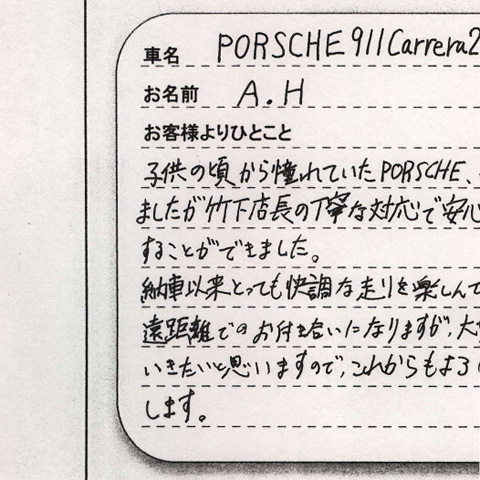 車名 PORSCHE 911 Carrera2
お名前 A.H
お客様よりひとこと
子供の頃から憧れていたPORSCHE、
ましたが竹下店長の丁寧な対応で安心
することができました。
納車以来とっても快調な走りを楽しんで
遠距離でのお付き合いになりますが、大
いきたいと思いますので、これからもよろ
します。